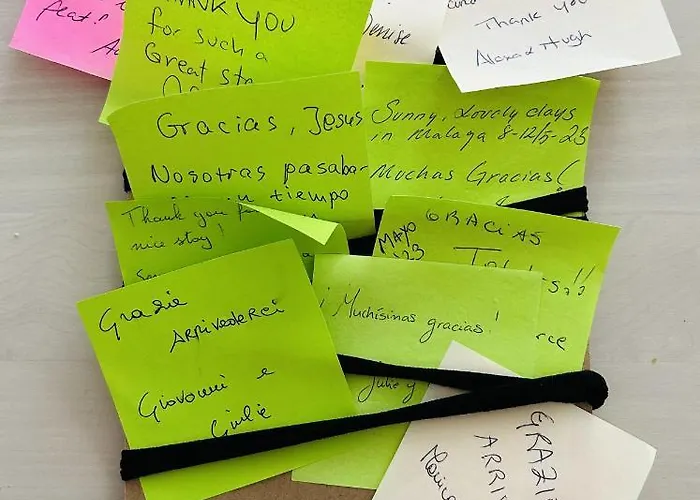 feat!
THANK YOU
for such a
Great
Denise
Thank you
Alex and Hugh
Gracias, Jesus
Nosotras pasaba-
tiempo
Sunny, Lovely days
in Malaga 8-12/5-23
Muchas Gracias!
Thank you
nice stay!
GRACIAS
MAYO
23
Grazie
ARRIVEDERCI
Giovanni e
Giulie
¡Muchísimas gracias!
rce
Julie y
GRAZIE
ARRI